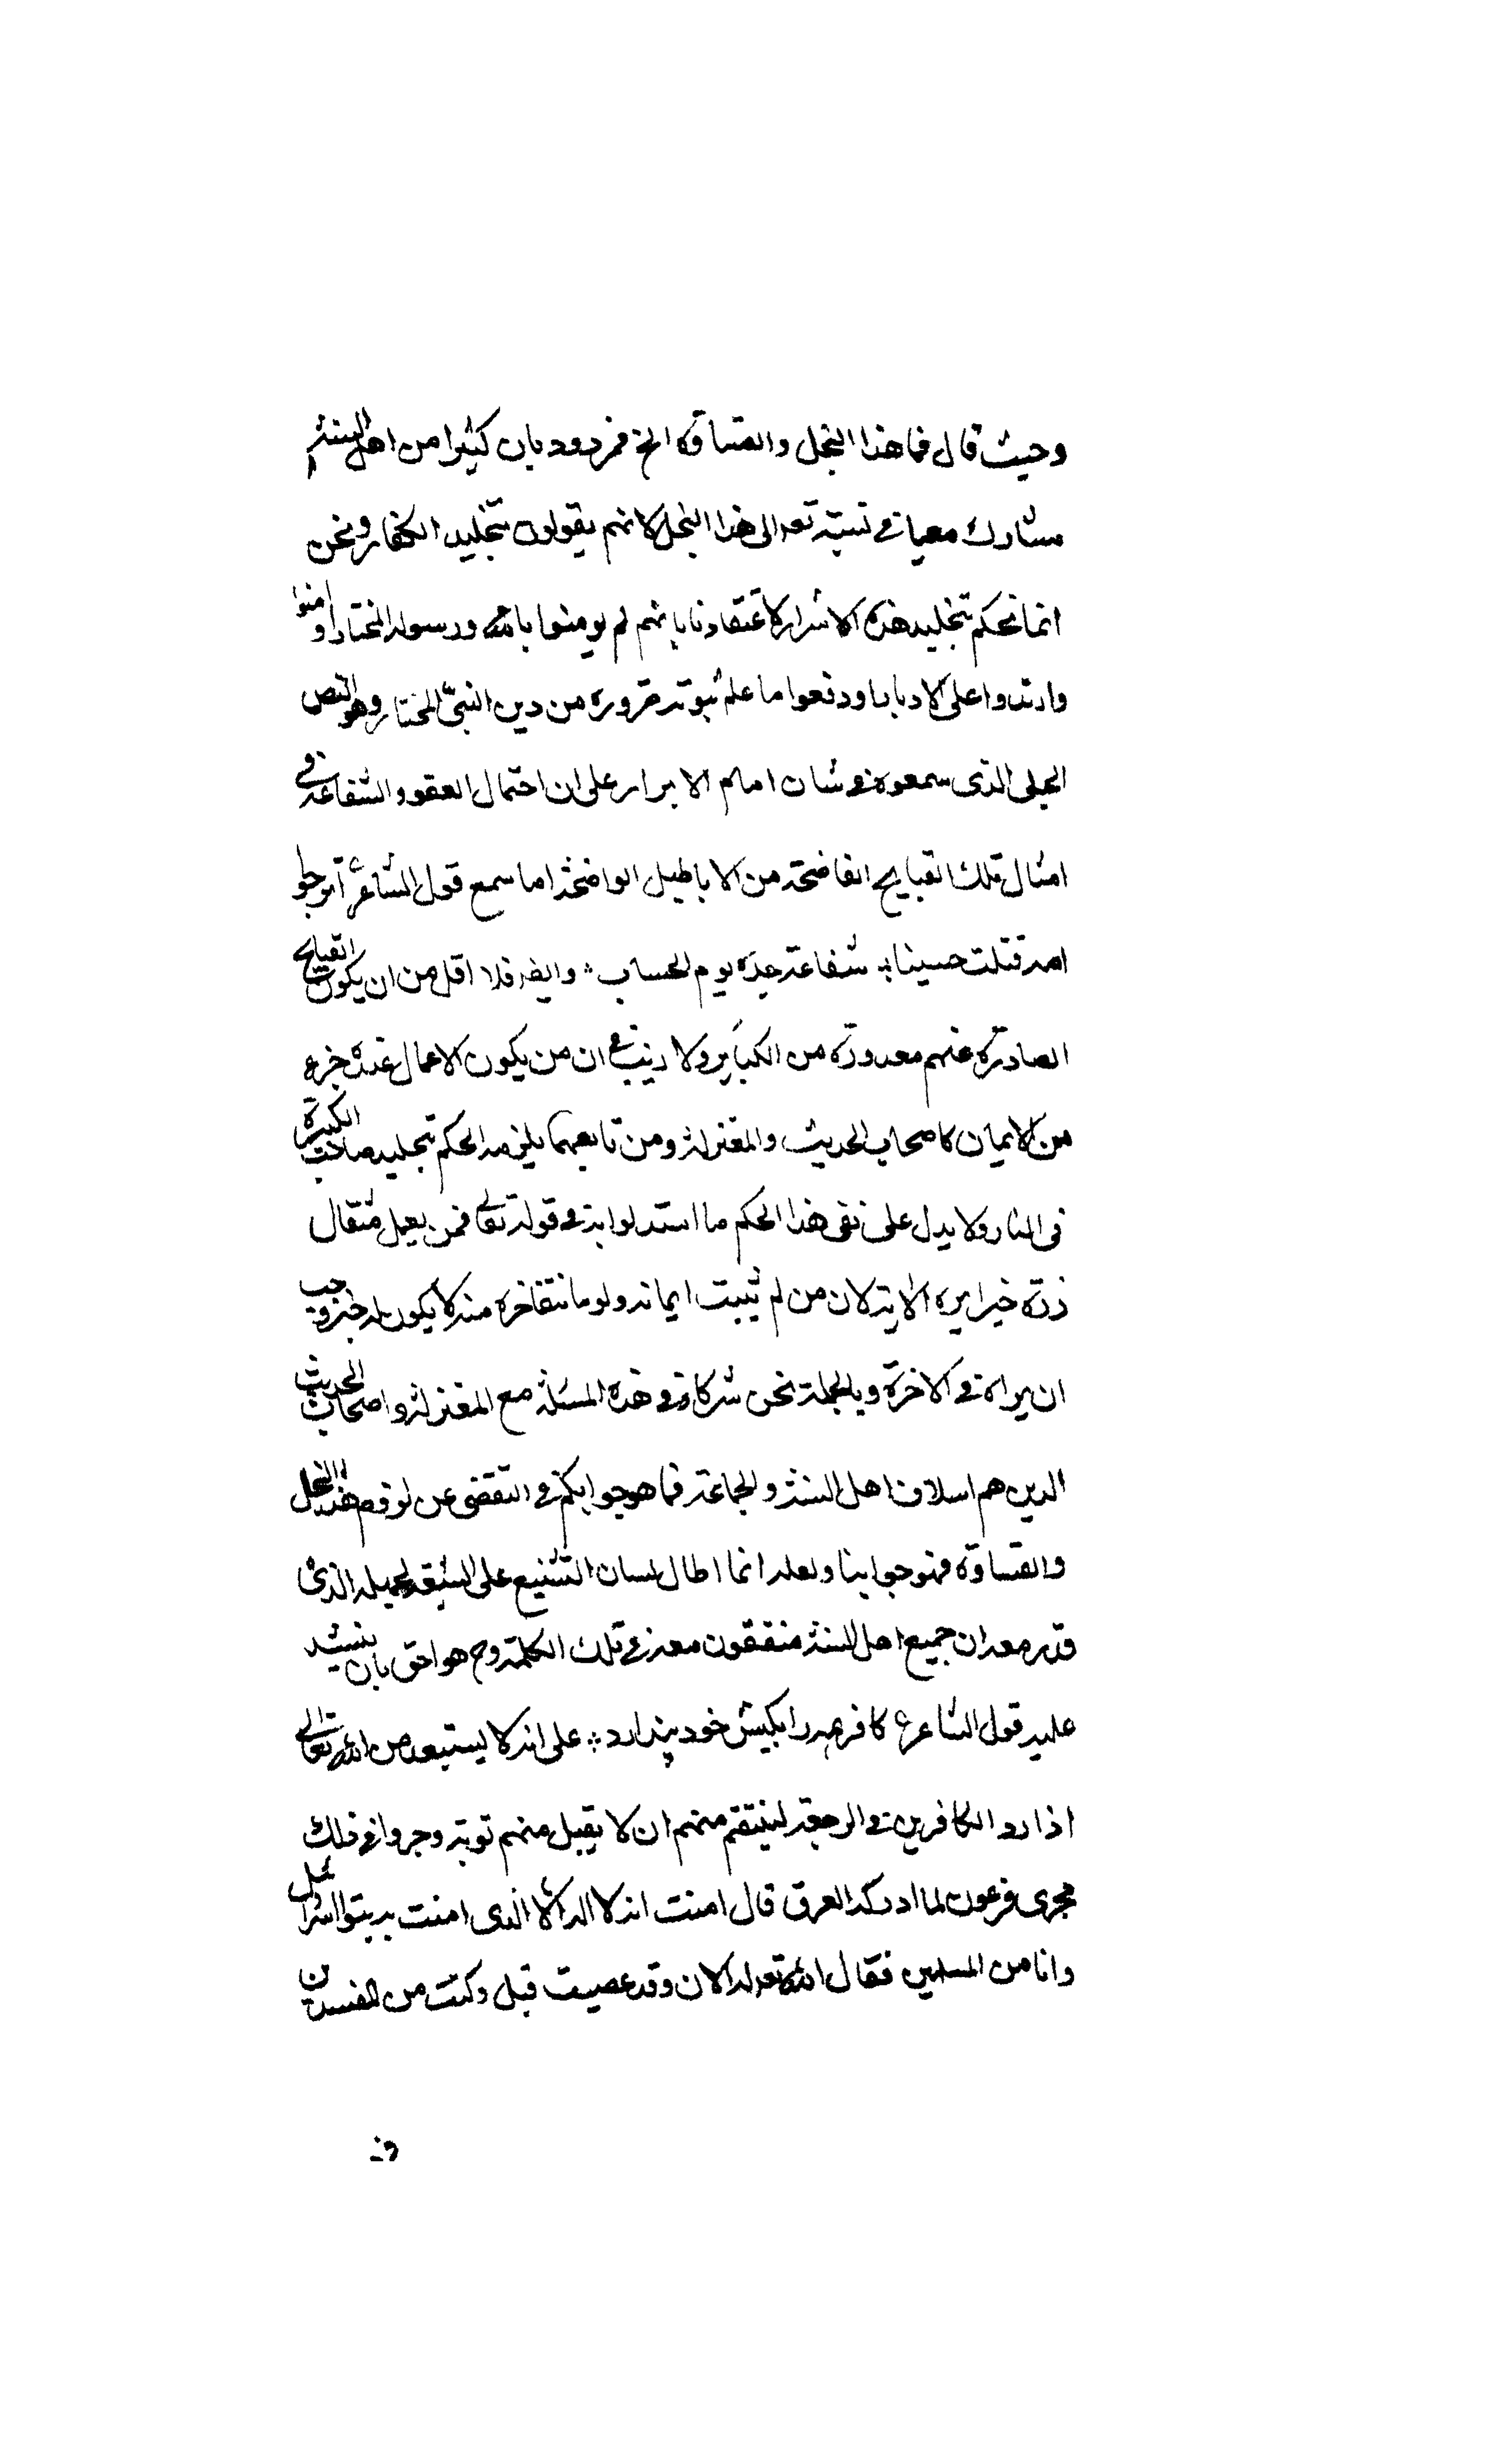 وحيث قال فما هذا البخل والقساوة الخ فمردود بان كثيرا من اهل السنة
مشارك معنا في نسبته تعه الى هذا البخل لانهم يقولون بتخليد الكفار ونحن
انما نحكم بتخليد هذه الاشرار لاعتقادنا بانهم لم يومنوا بالله ورسوله المختار او امنوا
وارتدوا على الادبار ودفعوا ما علم ثبوته ضرورة من دين النبي المختار وهو النص
الجلي الذي سمعوه في شان امام الابرار على ان احتمال العفو والشفاعة في
امثال تلك القبايح الفاضحة من الاباطيل الواضحة اما سمع قول الشاعر ع اترجوا
امة قتلت حسينا شفاعة جده يوم الحساب وايضا فلا اقل من ان يكون القبايح
الصادرة عنهم معدودة من الكباير ولا ريب في ان من يكون الاعمال عنده جزء
من الايمان كاصحاب الحديث والمعتزلة ومن تابعهما يلزمه الحكم بتخليد صاحب الكبيرة
في النار ولا يدل على نفي هذا الحكم ما استدلوا به في قوله تعالى فمن يعمل مثقال
ذرة خيرا يره الاية لان من لم يثبت ايمانه ولو بانتفاء جزء منه لا يكون له خير وجب
ان يراه في الاخرة وبالجملة نحن شركاء في هذه المسئلة مع المعتزلة واصحاب الحديث
الذين هم اسلاف اهل السنة والجماعة فما هو جوابكم في التفصي عن لزوم هذا البخل
والقساوة فهو جوابنا ولعله انما اطال لسان التشنيع على الشيعة لجهله الذي
قدر معه ان جميع اهل السنة متفقون معه في تلك الكلمة وح هو احق بان ينشد
عليه قول الشاعر ع كافر همه را بكيش خود پندارد على انه لا يستبعد من الله تعالى
اذا رد الكافرين في الرجعة لينتقم منهم ان لا يقبل منهم توبة وجروا في ذلك
مجرى فرعون لما ادركه الغرق قال امنت انه لا اله الا الذي امنت به بنو اسرائيل
وانا من المسلمين فقال الله تعه له الان وقد عصيت قبل وكنت من المفسدين